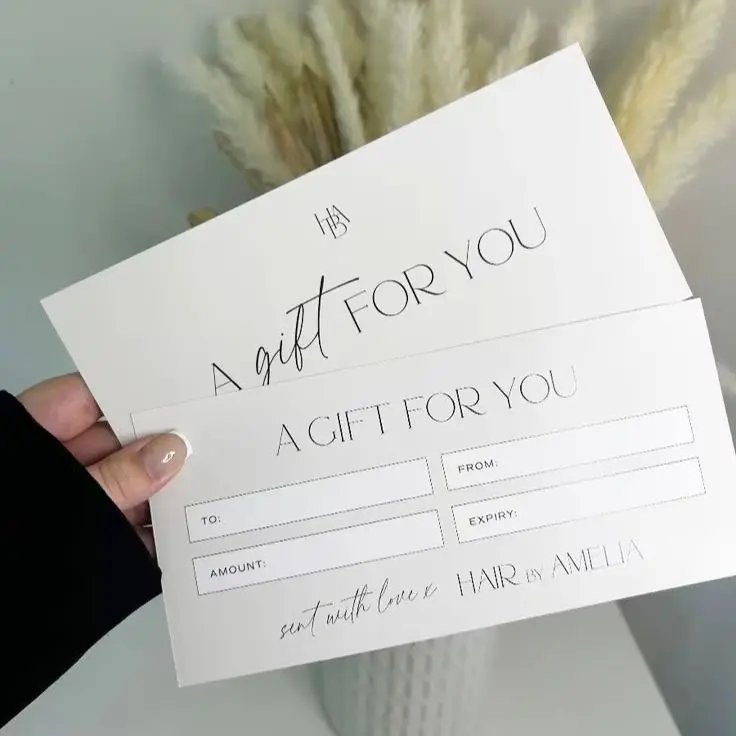 HBA
A gift FOR YOU
A GIFT FOR YOU
TO:
FROM:
AMOUNT:
EXPIRY:
sent with love x HAIR BY AMELIA